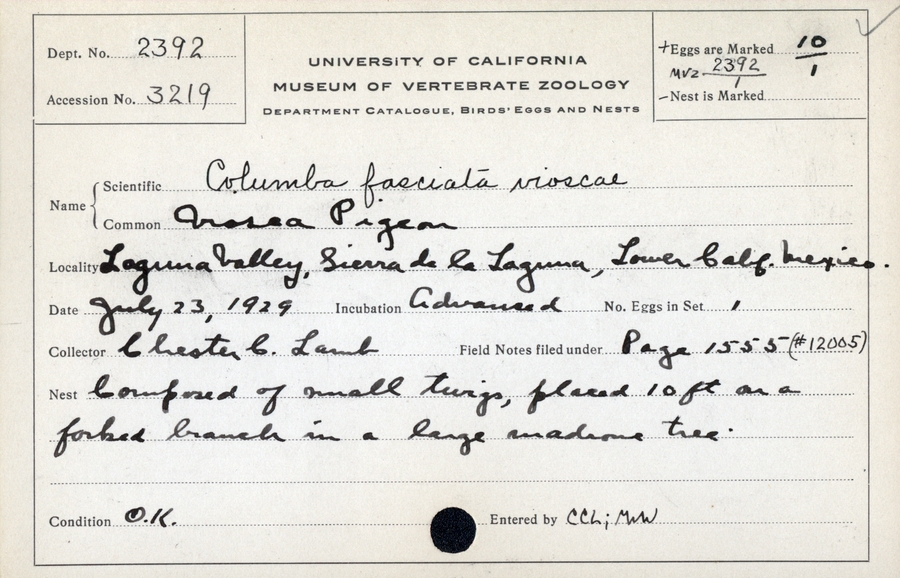 Dept. No. 2392
Accession No. 3219
UNIVERSITY OF CALIFORNIA
MUSEUM OF VERTEBRATE ZOOLOGY
DEPARTMENT CATALOGUE, BIRDS' EGGS AND NESTS
+Eggs are Marked 10/1
MVZ 2392/1
-Nest is Marked
Name
Scientific Columba fasciata vioscae
Common Viosca Pigeon
Locality Laguna Valley, Sierra de la Laguna, Lower Calif. Mexico.
Date July 23, 1929 Incubation Advanced No. Eggs in Set 1
Collector Chester C. Lamb Field Notes filed under Page 1555 (#12005)
Nest Composed of small twigs, placed 10 ft on a
forked branch in a large madrone tree.
Condition O.K. Entered by CCL; MW